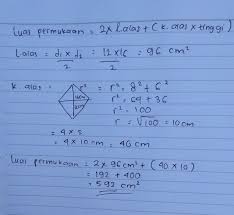 Luas permukaan = 2 x L alas + (k. alas x tinggi)
L alas = d₁ x d₂ = 12 x 16 = 96 cm²
2 2
k alas = r² = 8² + 6²
r² = 64 + 36
r² = 100
r = √100 = 10 cm
= 4 x 10 cm = 40 cm
Luas permukaan = 2 x 96 cm² + (40 x 10)
= 192 + 400
= 592 cm²